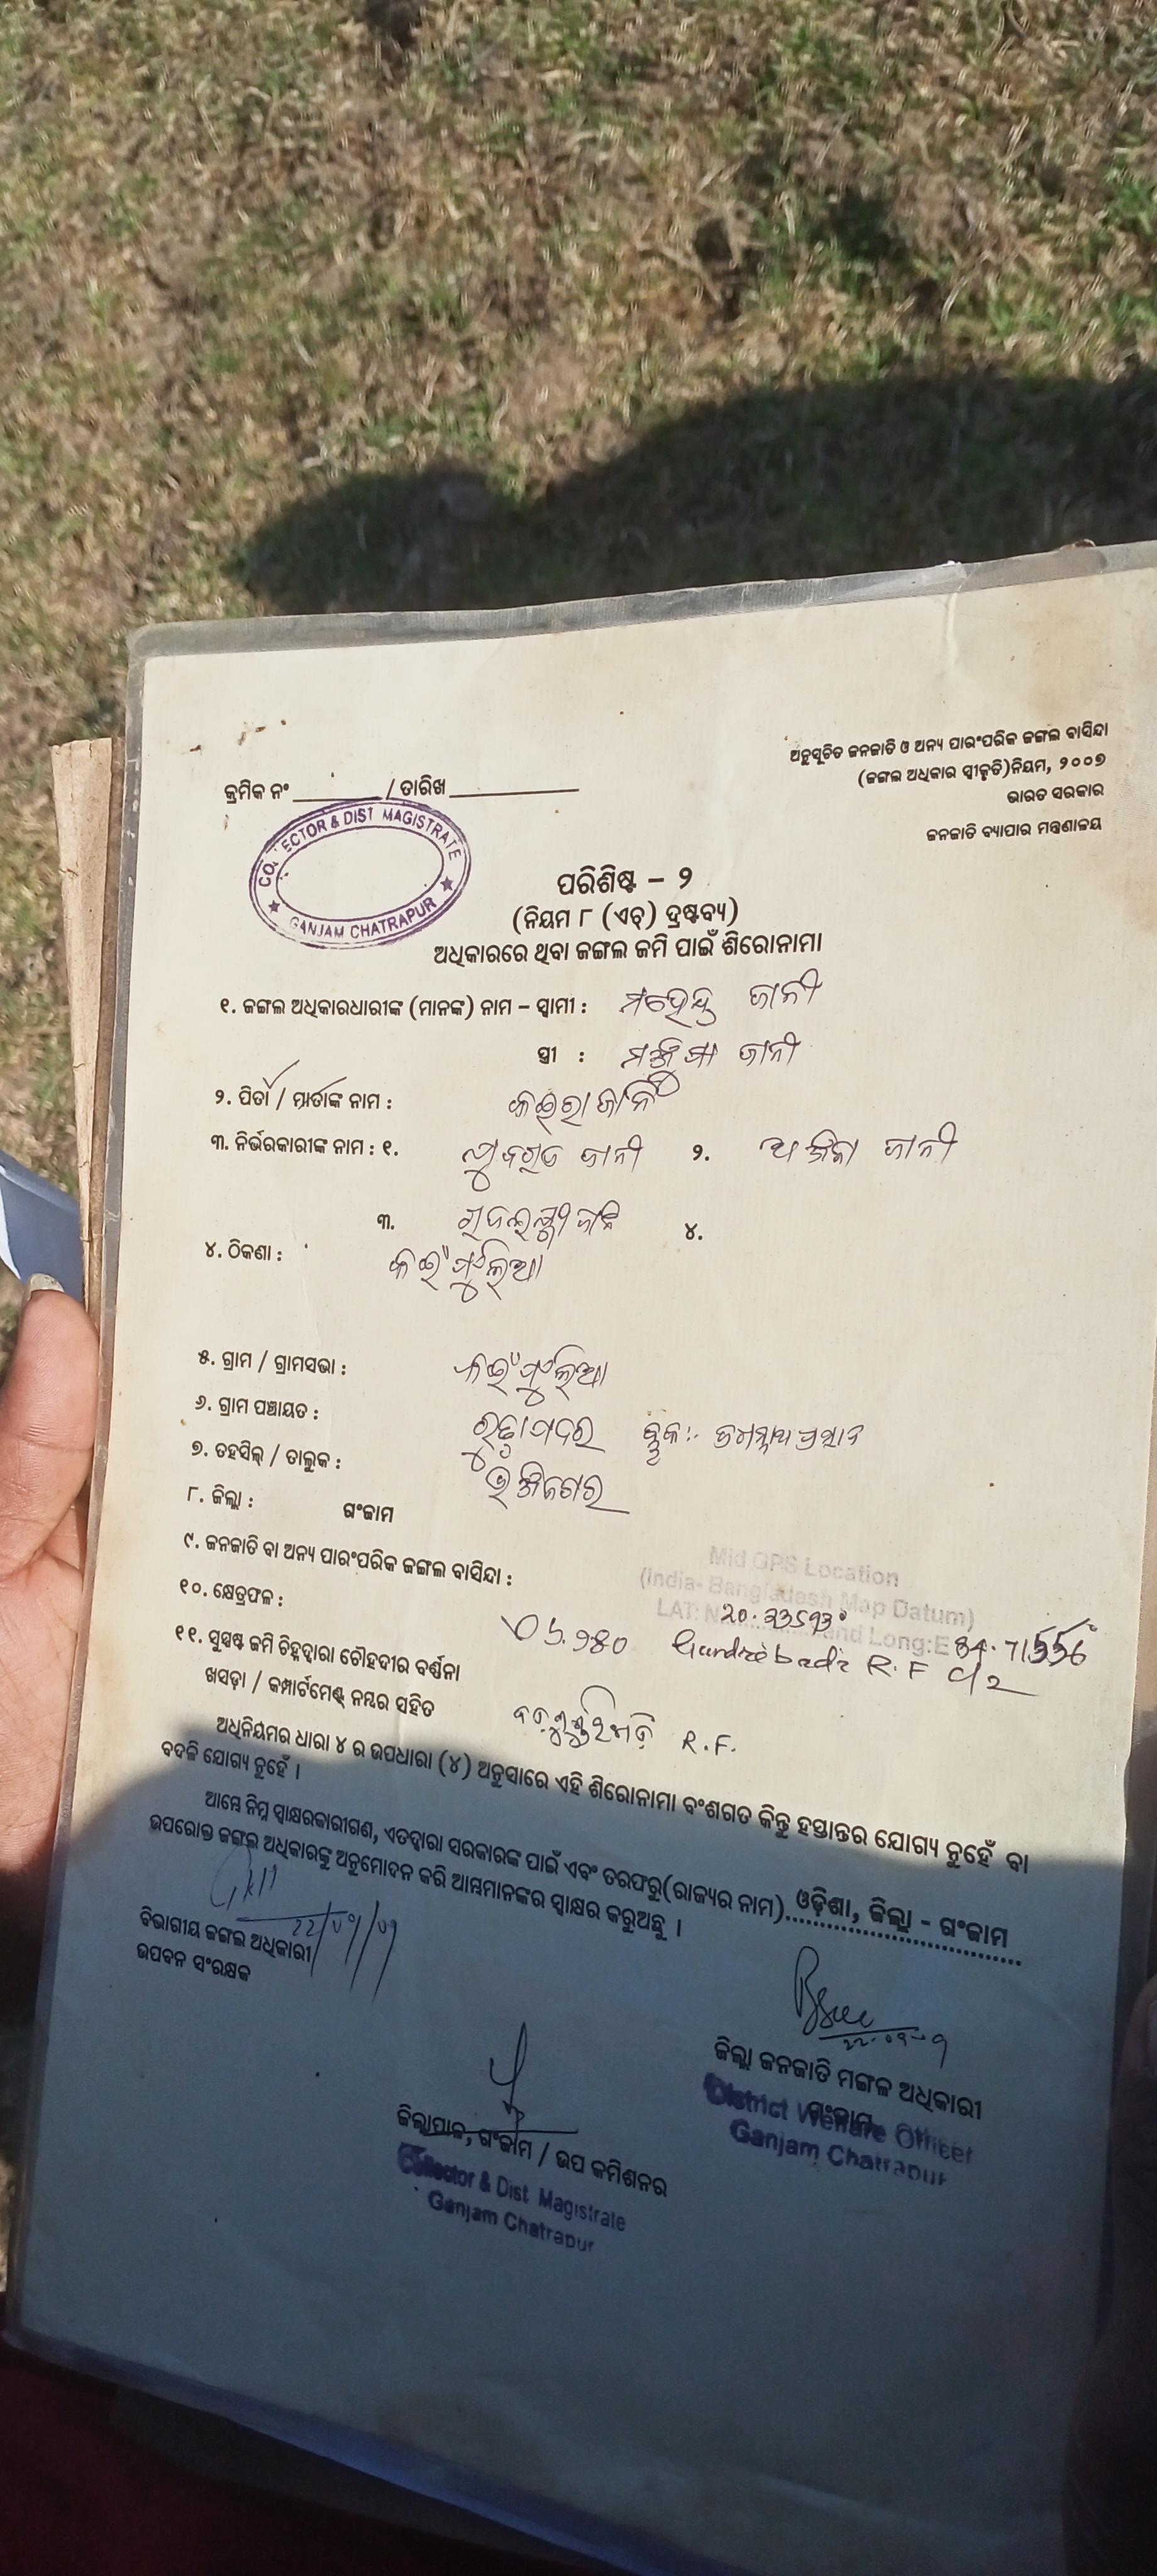 ଅନୁସୂଚିତ ଜନଜାତି ଓ ଅନ୍ୟ ପାରଂପରିକ ଜଙ୍ଗଲ ବାସିନ୍ଦା
(ଜଙ୍ଗଲ ଅଧିକାର ସ୍ୱୀକୃତି)ନିୟମ, ୨୦୦୭
ଭାରତ ସରକାର
ଜନଜାତି ବ୍ୟାପାର ମନ୍ତ୍ରଣାଳୟ
କ୍ରମିକ ନଂ ________ / ତାରିଖ ____________
COLLECTOR & DIST MAGISTRATE
GANJAM CHATRAPUR
ପରିଶିଷ୍ଟ – ୨
(ନିୟମ ୮ (ଏଚ୍) ଦ୍ରଷ୍ଟବ୍ୟ)
ଅଧିକାରରେ ଥିବା ଜଙ୍ଗଲ ଜମି ପାଇଁ ଶିରୋନାମା
୧. ଜଙ୍ଗଲ ଅଧିକାରଧାରୀଙ୍କ (ମାନଙ୍କ) ନାମ – ସ୍ୱାମୀ : ମହେନ୍ଦ୍ର ଜାନୀ
ସ୍ତ୍ରୀ : ଜାନୀ
୨. ପିତା / ମାତାଙ୍କ ନାମ : କଇରା ଜାନି
୩. ନିର୍ଭରକାରୀଙ୍କ ନାମ : ୧. ଜାନୀ ୨. ଜାନୀ
୩. ୪.
୪. ଠିକଣା :
୫. ଗ୍ରାମ / ଗ୍ରାମସଭା :
୬. ଗ୍ରାମ ପଞ୍ଚାୟତ : ବ୍ଲକ :- ଜଗନ୍ନାଥ ପ୍ରସାଦ
୭. ତହସିଲ୍ / ତାଲୁକ : ଭଞ୍ଜନଗର
୮. ଜିଲ୍ଲା : ଗଂଜାମ
୯. ଜନଜାତି ବା ଅନ୍ୟ ପାରଂପରିକ ଜଙ୍ଗଲ ବାସିନ୍ଦା :
Mid GPS Location
(India- Bangladesh Map Datum)
LAT: N 20.33593° and Long:E 84.71556°
୧୦. କ୍ଷେତ୍ରଫଳ :
୧୧. ସୁସ୍ପଷ୍ଟ ଜମି ଚିହ୍ନଦ୍ୱାରା ଚୌହଦୀର ବର୍ଣ୍ଣନା R.F C/2
ଖସଡ଼ା / କମ୍ପାର୍ଟମେଣ୍ଟ୍ ନମ୍ବର ସହିତ R.F.
ଅଧିନିୟମର ଧାରା ୪ ର ଉପଧାରା (୪) ଅନୁସାରେ ଏହି ଶିରୋନାମା ବଂଶଗତ କିନ୍ତୁ ହସ୍ତାନ୍ତର ଯୋଗ୍ୟ ନୁହେଁ ବା
ବଦଳି ଯୋଗ୍ୟ ନୁହେଁ ।
ଆମ୍ଭେ ନିମ୍ନ ସ୍ୱାକ୍ଷରକାରୀଗଣ, ଏତଦ୍ୱାରା ସରକାରଙ୍କ ପାଇଁ ଏବଂ ତରଫରୁ(ରାଜ୍ୟର ନାମ) ଓଡ଼ିଶା, ଜିଲ୍ଲା - ଗଂଜାମ
ଉପରୋକ୍ତ ଜଙ୍ଗଲ ଅଧିକାରଙ୍କୁ ଅନୁମୋଦନ କରି ଆମ୍ଭମାନଙ୍କର ସ୍ୱାକ୍ଷର କରୁଅଛୁ ।
ବିଭାଗୀୟ ଜଙ୍ଗଲ ଅଧିକାରୀ
ଉପବନ ସଂରକ୍ଷକ
ଜିଲ୍ଲା ଜନଜାତି ମଙ୍ଗଳ ଅଧିକାରୀ
ଗଂଜାମ
District Welfare Officer
Ganjam Chatrapur
ଜିଲ୍ଲାପାଳ, ଗଂଜାମ / ଉପ କମିଶନର
Collector & Dist. Magistrate
Ganjam Chatrapur